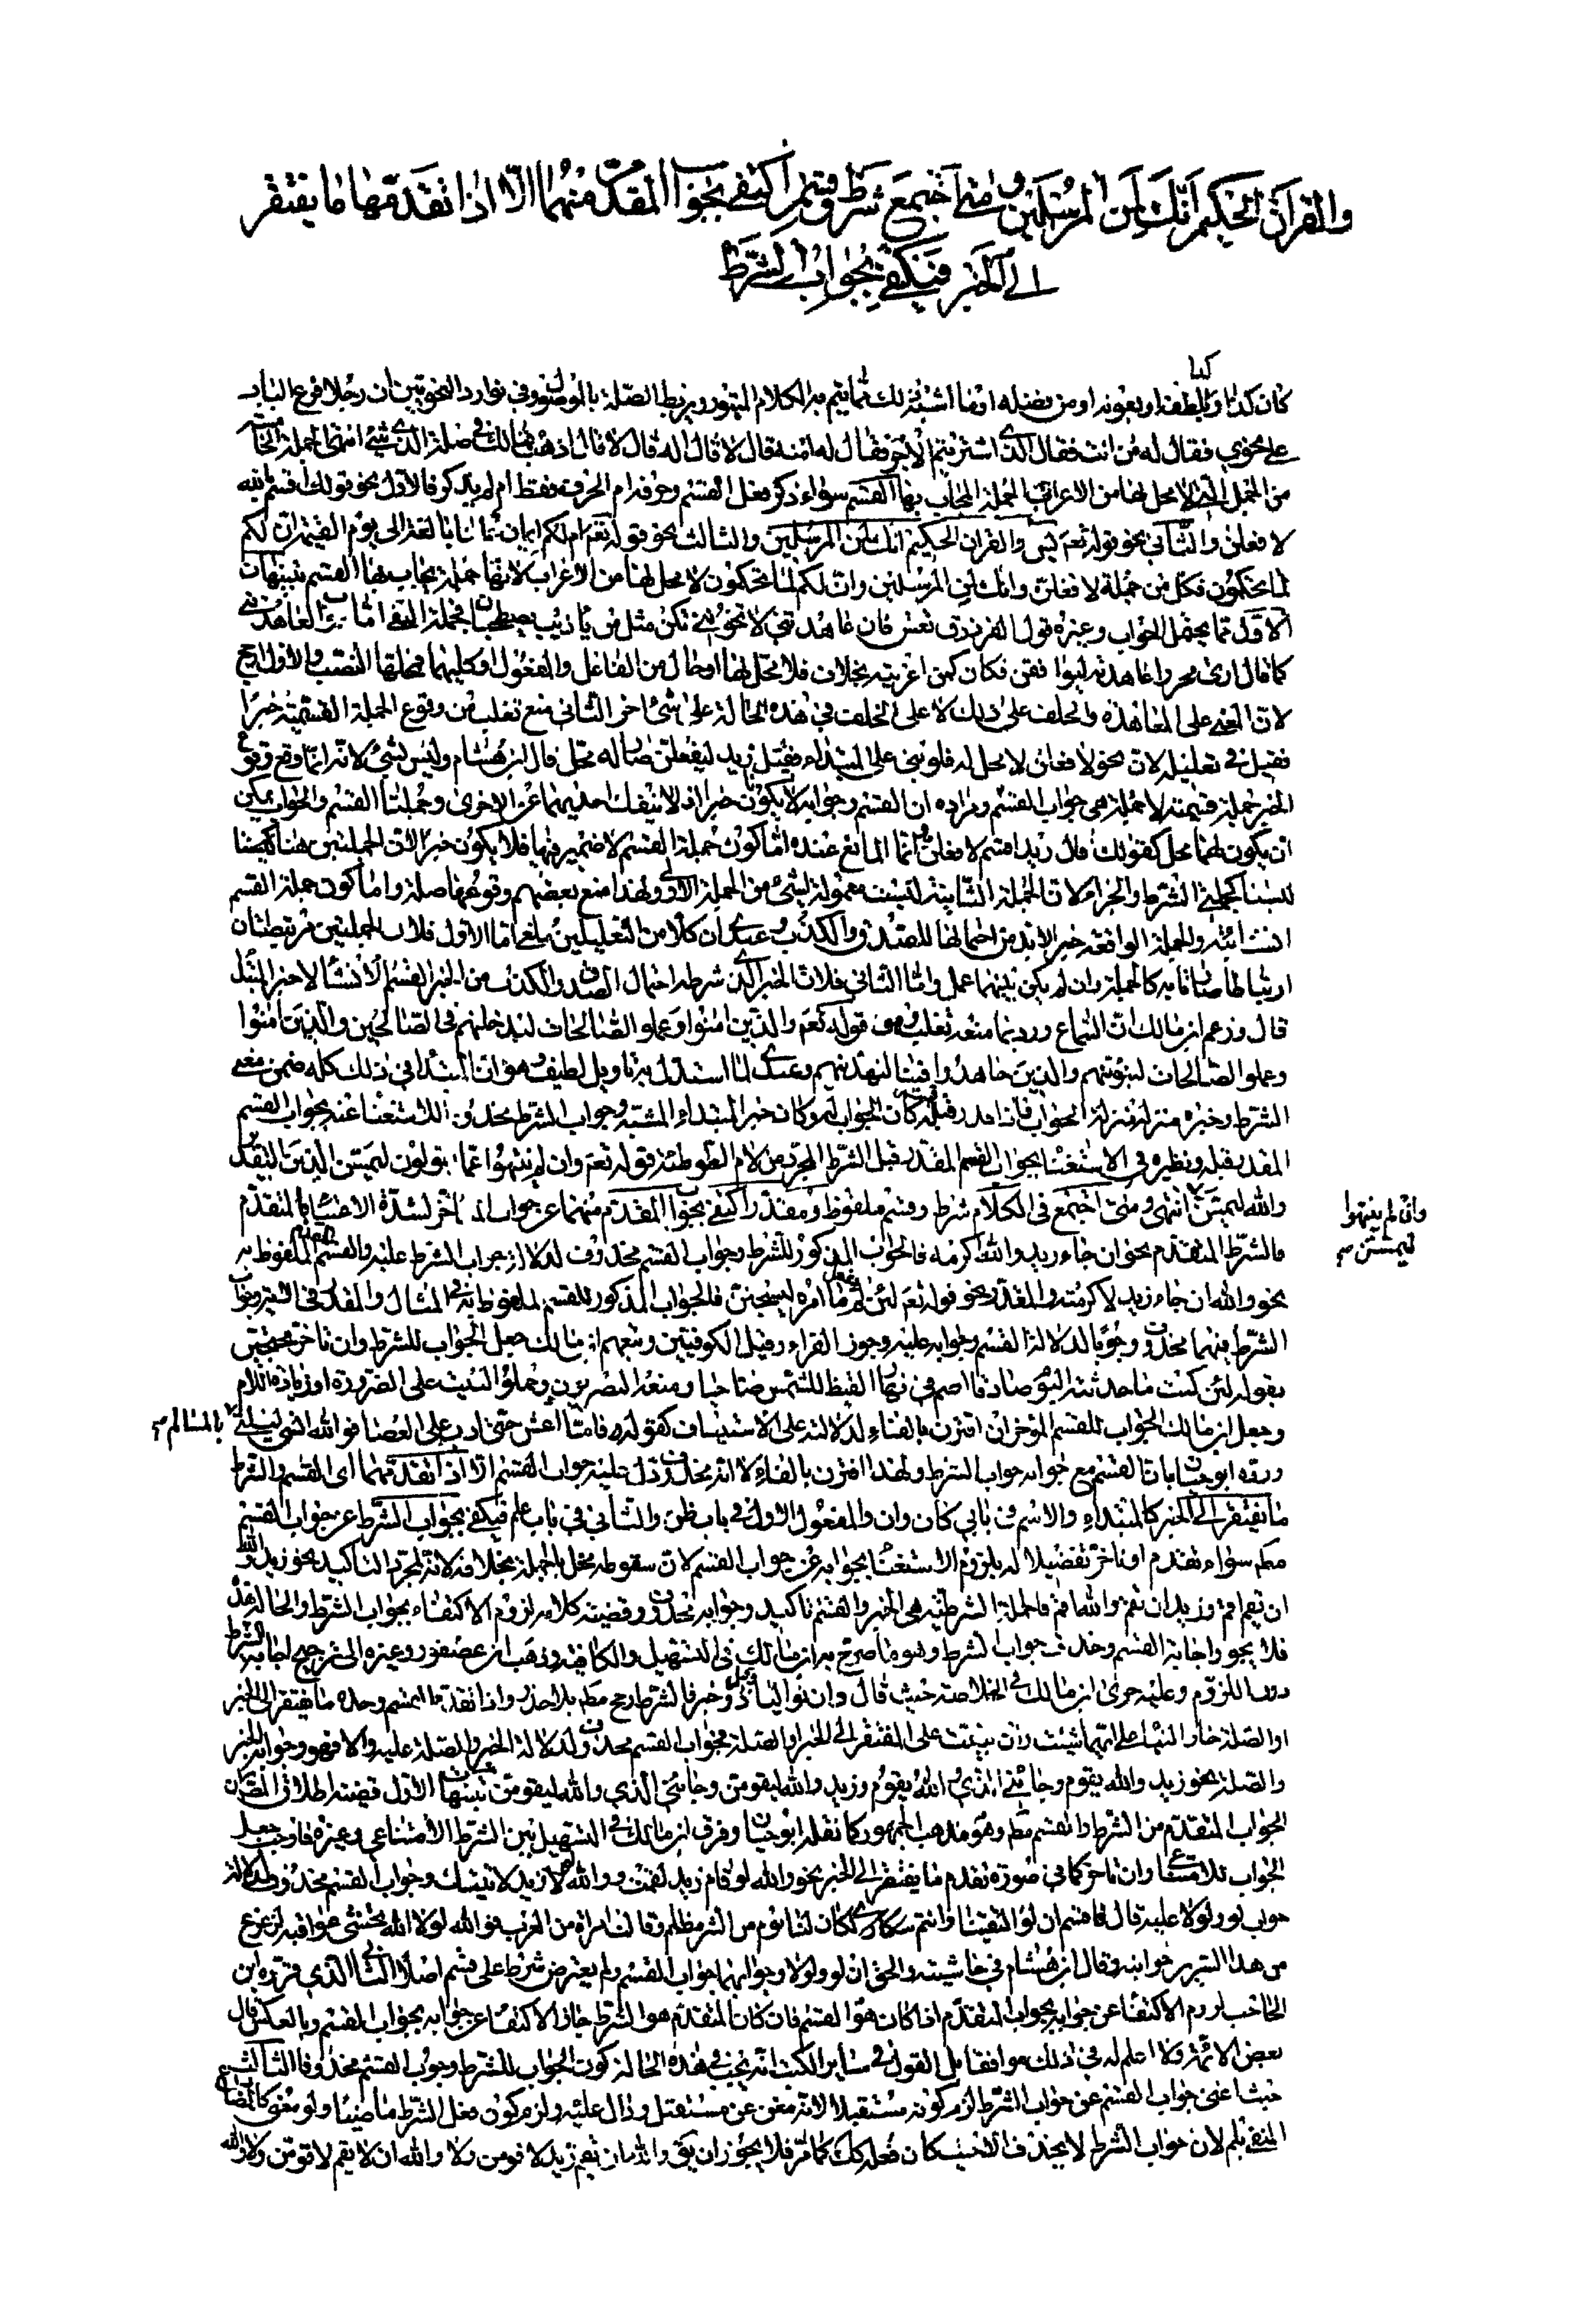 والقرآن الحكيم انك لمن المرسلين ومتى اجتمع شرط وقسم اكتفى بجواب المقدم منهما الا اذا تقدمهما ما يفتقر
الى الخبر فيكتفى بجواب الشرط
كان كذا او بلطفه او بعونه او من فضله او ما اشبه ذلك مما يتم به الكلام المبتور ويربط الصلة بالموصول وفي نوادر النحويين ان رجلا قرع الباب
على نحوي فقال له من انت فقال الذي اشتريتم الآجر فقال له امنه قال لا قال اله قال لا قال اذهب فما لك في صلة الذي شئ انتهى الجملة الخامسة
من الجمل التي لا محل لها من الاعراب الجملة المجاب بها القسم سواء ذكر فعل القسم وحرفه ام الحرف فقط ام لم يذكر فالاول نحو قولك اقسم بالله
لافعلن والثاني نحو قوله تعم يس والقران الحكيم انك لمن المرسلين والثالث نحو قوله تعم ام لكم ايمان علينا بالغة الى يوم القيمة ان لكم
لما تحكمون فكل من جملة لافعلن وانك لمن المرسلين وان لكم لما تحكمون لا محل لها من الاعراب لانها جملة يجاب بها القسم تنبيهات
الاول مما يحتمل الجواب وغيره قول الفرزدق تعش فان عاهدتني لا تخونني نكن مثل من يا ذئب يصطحبان فجملة النفي اما جواب العاهدتني
كما قال ارى محرزا عاهدته ليوافقن فكان كمن اغريته بخلاف فلا محل لها او حال من الفاعل والمفعول او كليهما فمحلها النصب والاول ارجح
لان المعنى على المعاهدة والحلف على ذلك لا على الحلف في هذه الحالة على شئ اخر الثاني منع ثعلب من وقوع الجملة القسمية خبرا
فقيل في تعليله لان نحو لافعلن لا محل له فلو بني على المبتداء فقيل زيد ليفعلن صار له محل قال ابن هشام وليس بشئ لانه انما وقع وقوع
الخبر جملة قسمية لا جملة هي جواب القسم ومراده ان القسم وجوابه لا يكونان خبرا اذ لا ينفك احديهما عن الاخرى وجملتا القسم والجواب يمكن
ان يكون لهما محل كقولك قال زيد اقسم لافعلن وانما المانع عنده اما كون جملة القسم لا ضمير فيها فلا يكون خبرا لان الجملتين ههنا
ليستا كجملتي الشرط والجزاء لان الجملة الثانية ليست معمولة لشئ من الجملة الاولى ولهذا منع بعضهم وقوعها صلة واما كون جملة القسم
انشائية والجملة الواقعة خبرا لابد من احتمالها للصدق والكذب وعندي ان كلا من التعليلين ملغى اما الاول فلان الجملتين مرتبطتان
ارتباطا صارتا به كالجملة وان لم يكن بينهما عمل واما الثاني فلان الخبر الذي شرطه احتمال الصدق والكذب من الخبر القسيم للانشاء لا خبر المبتدا
قال وزعم ابن مالك ان السماع ورد بما منعه ثعلب وهو قوله تعم والذين امنوا وعملوا الصالحات لندخلنهم في الصالحين والذين امنوا
وعملوا الصالحات لنبوئنهم والذين جاهدوا فينا لنهدينهم وعندي لما استدل به تاويل لطيف وهو ان المبتدا في ذلك كله ضمن معنى
الشرط وخبره منزل منزلة الجواب فاذا قدر قبله قسم كان الجواب له وكان خبر المبتداء المشبه وجواب الشرط محذوفا للاستغناء عنه بجواب القسم
المقدر قبله ونظيره في الاستغناء بجواب القسم المقدر قبل الشرط المجرد من لام التوطئة قوله تعم وان لم ينتهوا عما يقولون ليمسن الذين التقدير
والله ليمسن انتهى ومتى اجتمع في الكلام شرط وقسم ملفوظ ومقدر اكتفى بجواب المقدم منهما عن جواب المؤخر لشدة الاعتناء بالمتقدم
وان لم ينتهوا
ليمسن صح
فالشرط المتقدم نحو ان جاء زيد والله اكرمه فالجواب المذكور للشرط وجواب القسم محذوف لدلالة جواب الشرط عليه والقسم المتقدم الملفوظ به
نحو والله ان جاء زيد لاكرمنه والمقدر نحو قوله تعم لئن لم يفعل ما امره ليسجنن فالجواب المذكور للقسم الملفوظ به في المثال والمقدر في الآية وجواب
الشرط فيهما محذوف وجوبا لدلالة القسم وجوابه عليه وجوز الفراء وقيل الكوفيين وتبعهم ابن مالك جعل الجواب للشرط وان تاخر محتجين
بقوله لئن كنت ما حدثته اليوم صادقا اصم في نهار القيظ للشمس ضاحيا ومنعه البصريون وحملوا البيت على الضرورة او زيادة اللام
وجعل ابن مالك الجواب للقسم المؤخر ان اقترن بالفاء لدلالته على الاستيناف كقوله فاما اعش حتى ادب على العصا فوالله انسى ليلتي بالمسالم صح
ورده ابو حيان بان القسم مع جوابه جواب الشرط ولهذا اقترن بالفاء لا انه محذوف دل عليه جواب القسم الا اذا تقدمهما اى القسم والشرط
ما يفتقر الى الخبر كالمبتداء والاسم في بابي كان وان والمفعول الاول في باب ظن والثاني في باب علم فيكتفى بجواب الشرط عن جواب القسم
مطم سواء تقدم او تاخر تفضيلا له بلزوم الاستغناء بجوابه عن جواب القسم لان سقوطه مخل بالجملة بخلافه لانه لمجرد التاكيد نحو زيد والله
ان يقم اقم وزيد ان يقم والله اقم فالجملة الشرطية هي الخبر والقسم تاكيد وجوابه محذوف وقضية كلامه لزوم الاكتفاء بجواب الشرط والحالة هذه
فلا يجوز اجابة القسم وحذف جواب الشرط وهو ما صرح به ابن مالك في التسهيل والكافية وذهب ابن عصفور وغيره الى ترجيح اجابة الشرط
دون اللزوم وعليه جرى ابن مالك في الخلاصة حيث قال وان تواليا وقبل ذو خبر فالشرط رجح مطم بلا حذر واذا تقدم القسم وحده ما يفتقر الى الخبر
او الصلة جاز البناء على ايهما شئت فان بنيت على المفتقر الى الخبر او الصلة فجواب القسم محذوف لدلالة الخبر والصلة عليه والا فهو وجوابه الخبر
والصلة نحو زيد والله يقوم وجائني الذي والله يقوم وزيد والله ليقومن وجائني الذي والله ليقومن تنبيهات الاول قضية اطلاق المصنف ان
الجواب للمتقدم من الشرط والقسم مطم وهو مذهب الجمهور كما نقله ابو حيان وفرق ابن مالك في التسهيل بين الشرط الامتناعي وغيره فاوجب جعل
الجواب للامتناعي وان تاخر كما في صورة تقدم ما يفتقر الى الخبر نحو والله لو قام زيد لقمت ووالله لولا زيد لاتيتك وجواب القسم محذوف لدلالة
جواب لو ولولا عليه قال فاقسم ان لو التقينا وانتم لكان لنا يوم من الشر مظلم وقالت امراة من العرب فوالله لولا الله تخشى عواقبه لزعزع
من هذا السرير جوانبه وقال ابن هشام في حاشيته والحق ان لو ولولا وجوابهما جواب القسم ولم يعترض شرط على قسم اصلا الثاني الذي قرره ابن
الحاجب لزوم الاكتفاء عن جوابه بجواب المتقدم اذا كان هو القسم فان كان المتقدم هو الشرط جاز الاكتفاء عن جوابه بجواب القسم وبالعكس قال
بعض الائمة ولا اعلم له في ذلك موافقا بل القول في سائر الكتب انه يجب في هذه الحالة كون الجواب للشرط وجواب القسم محذوفا الثالث
حيث اغنى جواب القسم عن جواب الشرط لزم كونه مستقبلا لانه مغن عن مستقبل ودال عليه ولزم كون فعل الشرط ماضيا ولو معنى كالمضارع
المنفي بلم لان جواب الشرط لا يحذف الا حيث كان فعله كك كما مر فلا يجوز ان يق والله ان يقم زيد لاقومن ولا والله ان لا يقم لاقومن ولا والله